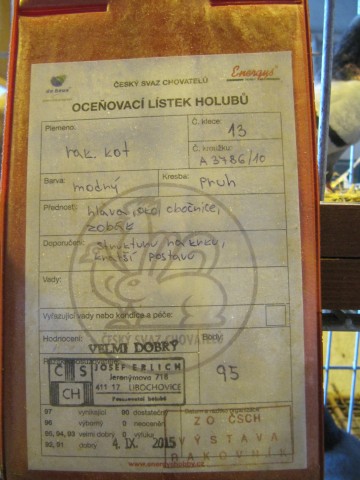 ČESKÝ SVAZ CHOVATELŮ
Energys
OCEŇOVACÍ LÍSTEK HOLUBŮ
Plemeno: rak. kot
Č. klece: 13
Č. kroužku: A 3786/10
Barva: modrý
Kresba: Pruh
Přednosti: hlava, oko, obočnice,
zobák
Doporučení: strukturu na krku,
kratší postavu
Vady:
Vyřazující vady nebo kondice a péče:
ČESKÝ SVAZ CHOVATELŮ
Hodnocení: VELMI DOBRÝ
Body: 95
ČS
CH
JOSEF ERLICH
Jeronýmova 718
411 17 LIBOCHOVICE
Posuzovatel holubů
97 vynikající 90 dostatečný
96 výborný 0 neoceněn
95, 94, 93 velmi dobrý 0 výluka
92, 91, dobrý
4. IX. 2015
ZO ČSCH
VÝSTAVA
RAKOVNÍK